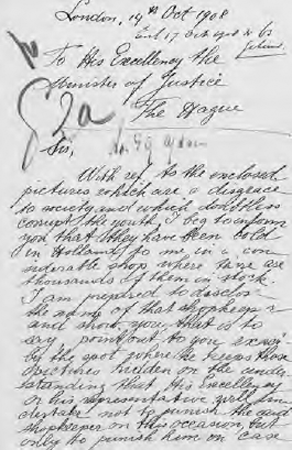 London, 14th Oct 1908
To His Excellency the
Minister of Justice
The Hague
Sir,
With ref. to the enclosed
pictures which are a disgrace
to society and which doubtless
corrupt the youth, I beg to inform
you that they have been sold
in Holland to me in a con
siderable shop where there are
thousands of them in stock.
I am prepared to disclose
the name of that shopkeeper
and show you, that is to
say point out to you exactly
the spot where he keeps those
pictures hidden on the under
standing that His Excellency
or his representative will
not to punish the said
shopkeeper on this occasion but
only to punish him in case